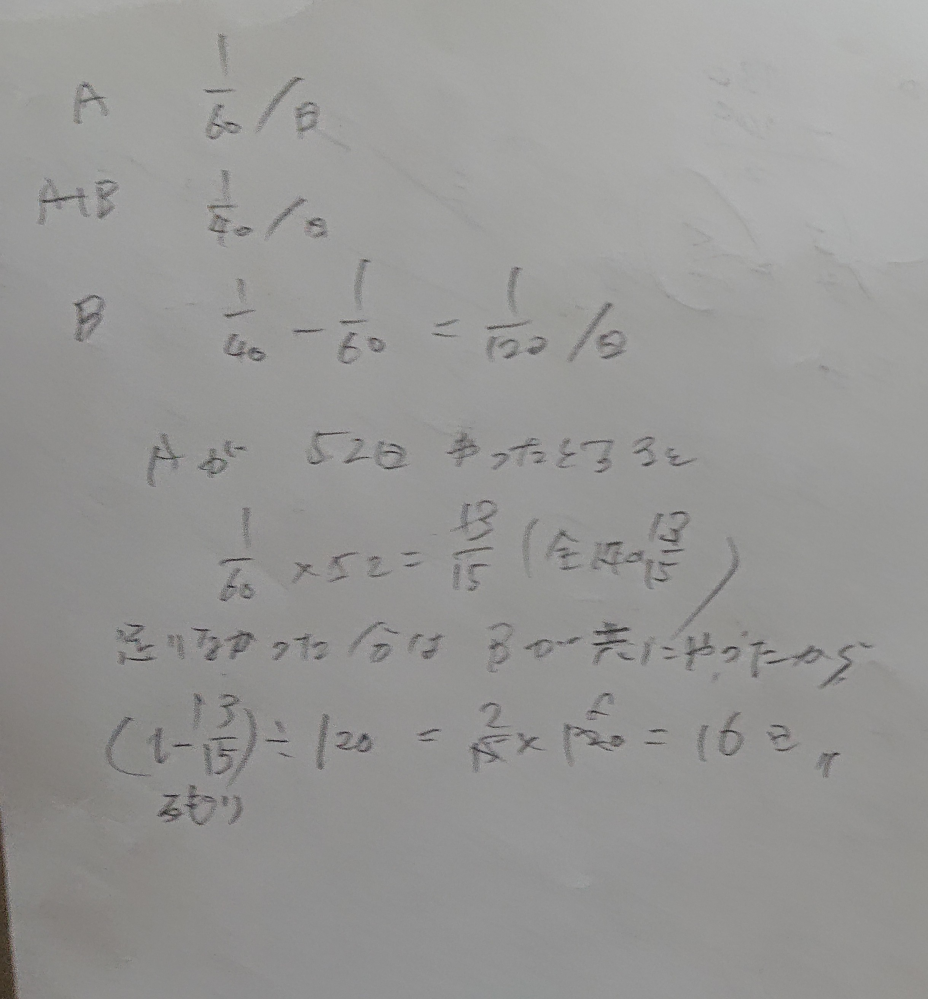 A 1/60 /日
A+B 1/40 /日
B 1/40 - 1/60 = 1/120 /日
Aが 52日 やったとすると
1/60 × 52 = 13/15 (全体の13/15)
足りなかった分は Bが共にやったから
(1-13/15) ÷ 120 = 2/15 × 120 = 16日
残り